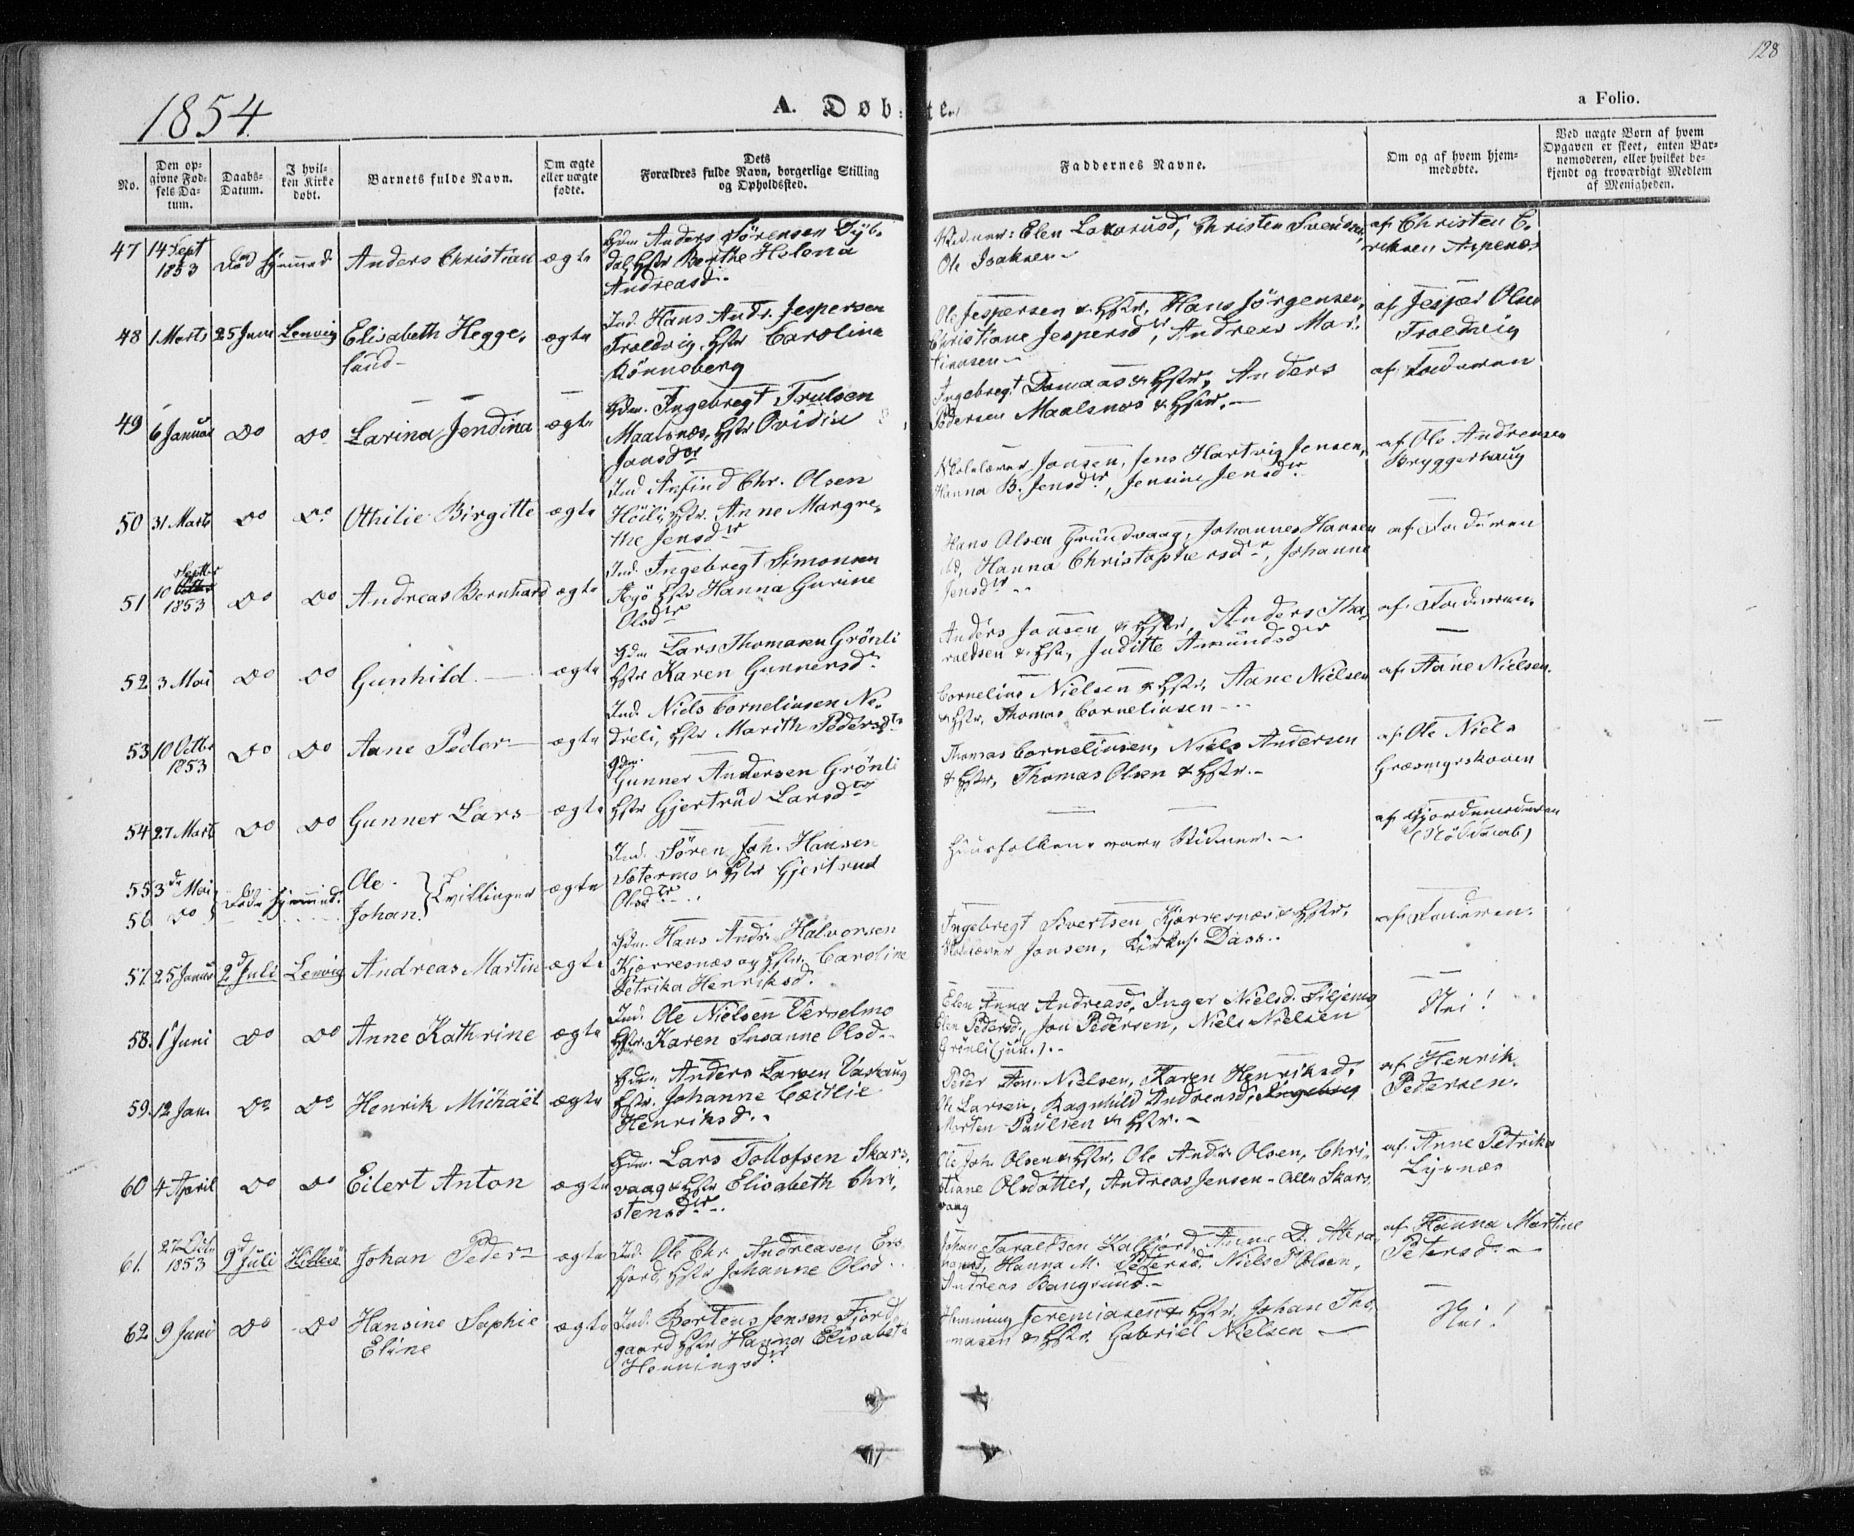 128
1854.
A. Døbte.
a Folio.
No.
Den opgivne Fødsels Datum.
Daabs-Datum.
I hvilken Kirke døbt.
Barnets fulde Navn.
Om ægte eller uægte fødte.
Dets Forældres fulde Navn, borgerlige Stilling og Opholdssted.
Faddernes Navne.
Om og af hvem hjemmedøbte.
Ved uægte Børn af hvem Opgaven er skeet, enten Barnemoderen, eller hvilket bekjendt og troværdigt Medlem af Menigheden.
47 14 Sept 1853 Død Hjemmed. Anders Christian ægte
Gdm. Anders Sørensen
Hstr Berthe Helena
Andreasd.
Vidner: Elen Lavrusd, Christen Svendsen,
Ole Isaksen
af Christen E-
riksen Aspenæs
48 1 Marts 25 Juni Lenvig Elisabeth Hegge-
lund
ægte
Ind. Hans Andr. Jespersen
Troldvig, Hstr Caroline
Rönneberg
Ole Jespersen & Hstr, Hans Jørgensen,
Christiane Jespersdr, Andreas Mar-
tinusen
af Jesper Olsen
Troldvig
49 6 Januar Do Do Larina Jendina ægte
Gdm. Ingebregt Trulsen
Maalsnæs, Hstr Ovidia
Jonsdr
Ingebregt Domaas & Hstr, Anders
Pedersen Maalsnæs & Hstr.
af Faderen
50 31 Marts Do Do Othilie Birgitte ægte
Ind Arfind Chr. Olsen
Hstr. Anne Margre-
the Jensdr
Skolelærer Jonsen, Jens Hartvig Jensen,
Hanna B. Jensdr, Jensine Jensdr
af Ole Andreasen
Bryggerhaug
51 10 Septbr 1853 Do Do Andreas Bernhard ægte
Ind. Ingebregt Simonsen
Hstr Hanna Gurine
Olsdr
Hans Olsen Grundvaag, Johannes Hansen
ibd, Hanna Christophersdr, Johanna
Jensdr
af Faderen
52 3 Mai Do Do Gunhild ægte
Gdm Lars Thomasen Grönli
Hstr Karen Gunnersd.
Anders Jonsen & Hstr, Anders Tha-
raldsen & Hstr, Juditte Amundsdr
af Faderen
53 10 Octbr 1853 Do Do Aane Peder ægte
Ind. Niels Corneliusen Ne-
dreli, Hstr Marith Pedersdr
Cornelius Nielsen & Hstr, Aane Nielsen
& Hstr, Thomas Corneliusen
af Aane Nielsen
54 27 Mart Do Do Gunner Lars ægte
Gdm. Gunner Andersen Grönli
Hstr Gjertrud Larsdr
Thomas Corneliusen, Niels Andersen
& Hstr, Thomas Olsen & Hstr.
af Ole Niels
Græsmyrskoven
55 3d Mai Døde Hjemmed. Ole
56 Do Johan. Tvillinger ægte
Ind. Søren Joh. Hansen
Sætermo & Hstr Gjertrud
Olsdr
Huusfolkene vare Vidner.
af Gjordemoderen
(Nøddaab)
57. 25 Januar 2d Juli Lenvig Andreas Martin ægte
Gdm. Hans Andr. Halvorsen
Kjærresnæs og Hstr. Caroline
Petrika Henriksd.
Ingebregt Sivertsen Kjærresnæs & Hstr,
Skolelærer Jonsen, Kirkes. Dass.
af Faderen.
58. 1 Juni Do Do Anne Kathrine ægte
Ind. Ole Nielsen Værselmo
Hstr. Karen Susanne Olsd.
Elen Anna Andreasd, Inger Nielsd. Siljemo
Elen Pedersd, Jon Pedersen, Niels Nielsen
Grönli (jun.).
Nei!
59. 12 Jan. Do Do Henrik Michäel ægte
Gdm. Anders Larsen Vaskaug
Hstr. Johanne Cæcilie
Henriksd.
Peder Ant. Nielsen, Karen Henriksd,
Ole Larsen, Ragnhild Andreasd, Ingebreg
Morten Paulsen & Hstr.
af Henrik
Pedersen.
60 4 April Do Do Eilert Anton ægte
Gdm. Lars Tollofsen Skars-
vaag & Hstr Elisabeth Chri-
stensdr
Ole Joh. Olsen & Hstr, Ole Andr. Olsen, Chri-
stiane Olsdatter, Andreas Jensen - Alle Skars-
vaag
af Anne Petrika
Lysnæs
61. 27 Octb. 1853 9d Juli Hillesø Johan Peder ægte
Ind. Ole Chr. Andreasen Ers-
fjord, Hstr Johanne Olsd.
Johan Taraldsen Kalfjord, Anne D. Abra-
hamsd, Hanna M. Petersd, Niels P. Olsen,
Andreas Bangsund.
af Hanna Martine
Petersd.
62. 9 Juni Do Do Hansine Sophie
Eline
ægte
Ind. Bertens Jensen Fjord-
gaard Hstr Hanna Elisabet
Henningsdr
Henning Jeremiasen & Hstr, Johan Tho-
masen & Hstr. Gabriel Nielsen
Nei!